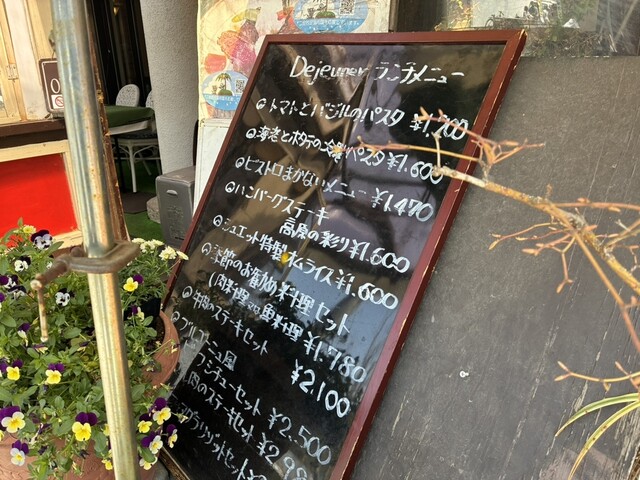 Dejeuner ランチメニュー
トマトとバジルのパスタ ¥1,200
海老とホタテの冷製パスタ ¥1,600
ビストロまかないメニュー ¥1,470
ハンバーグステーキ
高原の彩り ¥1,600
シュエット特製オムライス ¥1,600
季節のお勧め料理セット
(肉料理 魚料理 ¥1,780
のステーキセット
¥2,100
ブルゴーニュ風
シチューセット ¥2,500
肉のステーキセット
リゾットセット